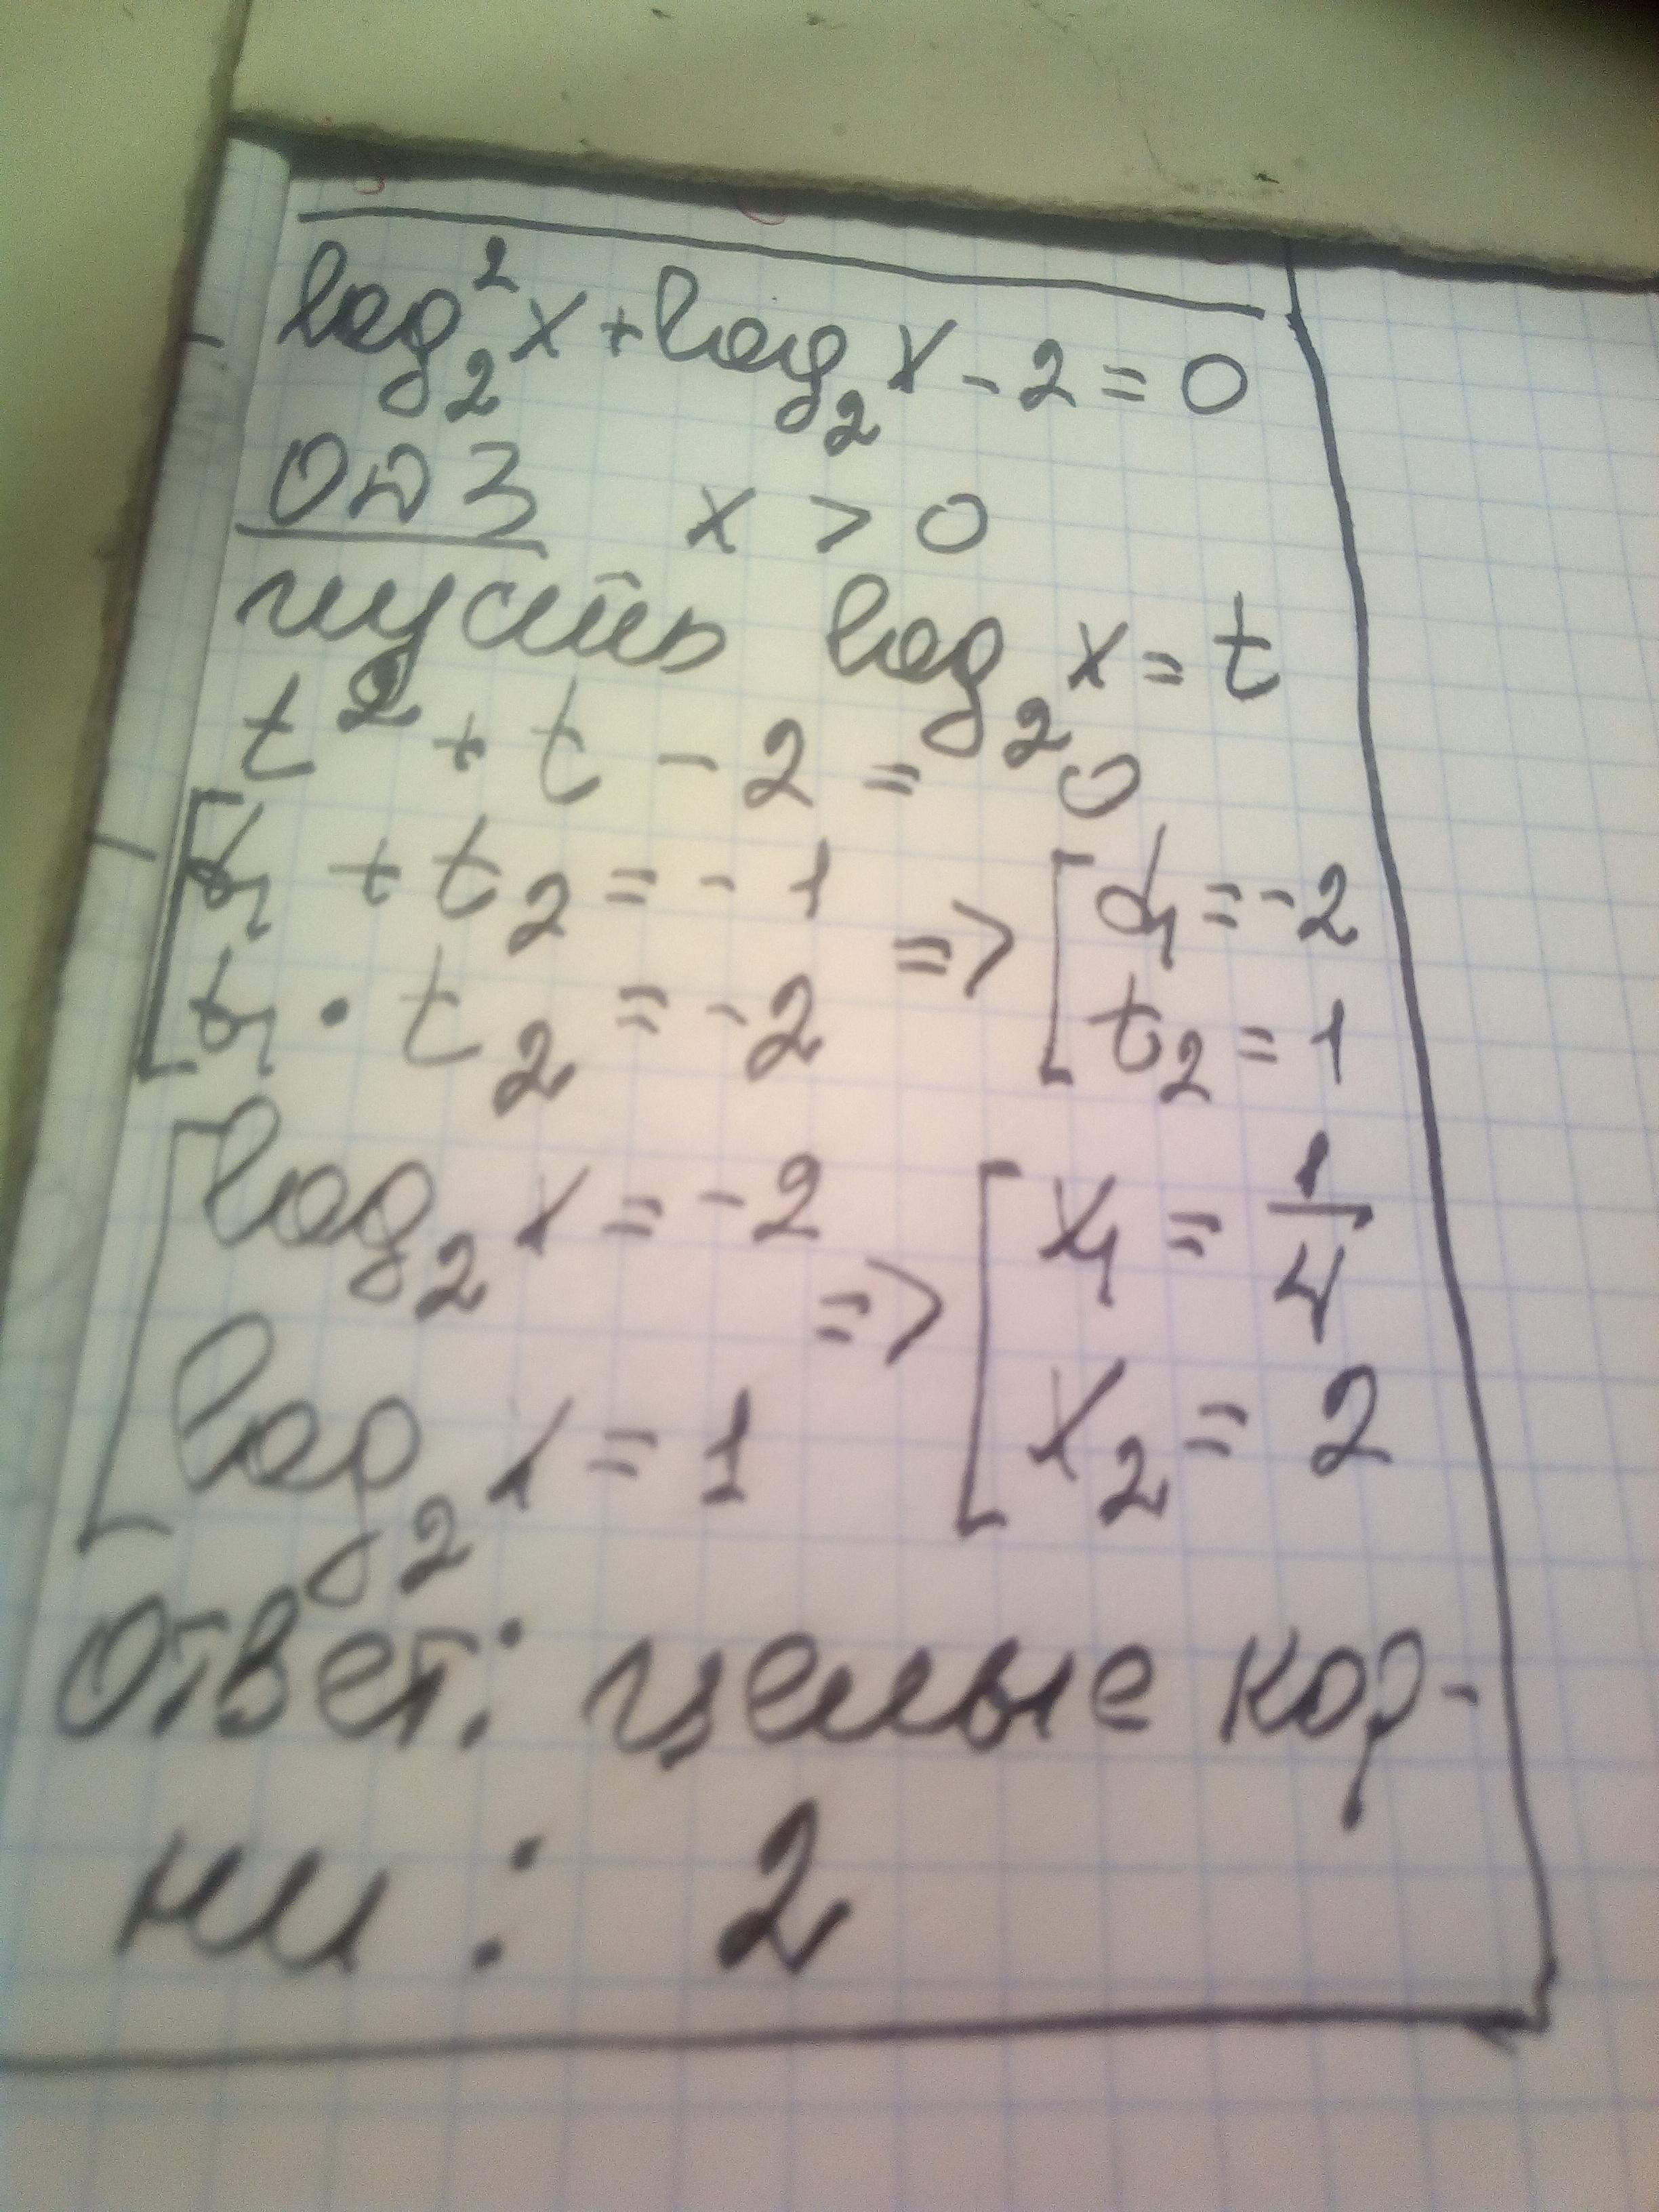 log₂²x + log₂x - 2 = 0
ОДЗ x > 0
пусть log₂x = t
t² + t - 2 = 0
[t₁ + t₂ = -1
t₁ · t₂ = -2 => [t₁ = -2
t₂ = 1
[log₂x = -2
log₂x = 1 => [x₁ = 1/4
x₂ = 2
Ответ: целые кор-
ни: 2